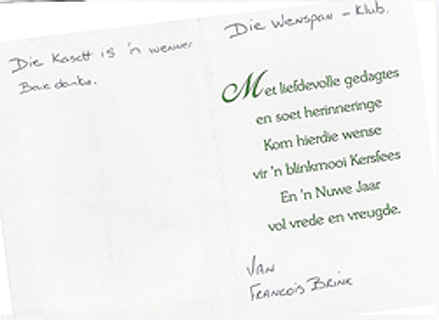 Die Kasett is 'n wenner
Baie dankie.
Die Wenspan - Klub.
Met liefdevolle gedagtes
en soet herinneringe
Kom hierdie wense
vir 'n blinkmooi Kersfees
En 'n Nuwe Jaar
vol vrede en vreugde.
Van
Francois Brink